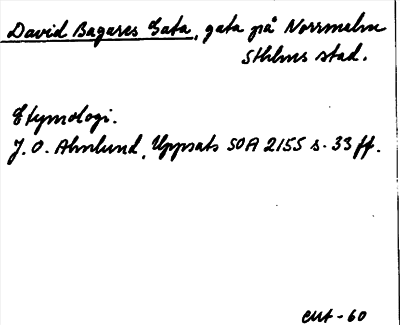 David Bagares Gata, gata på Norrmalm
Sthlms stad.
Etymologi.
J. O. Ahnlund, Uppsats SOA 2155 s. 33 ff.
EUt - 60